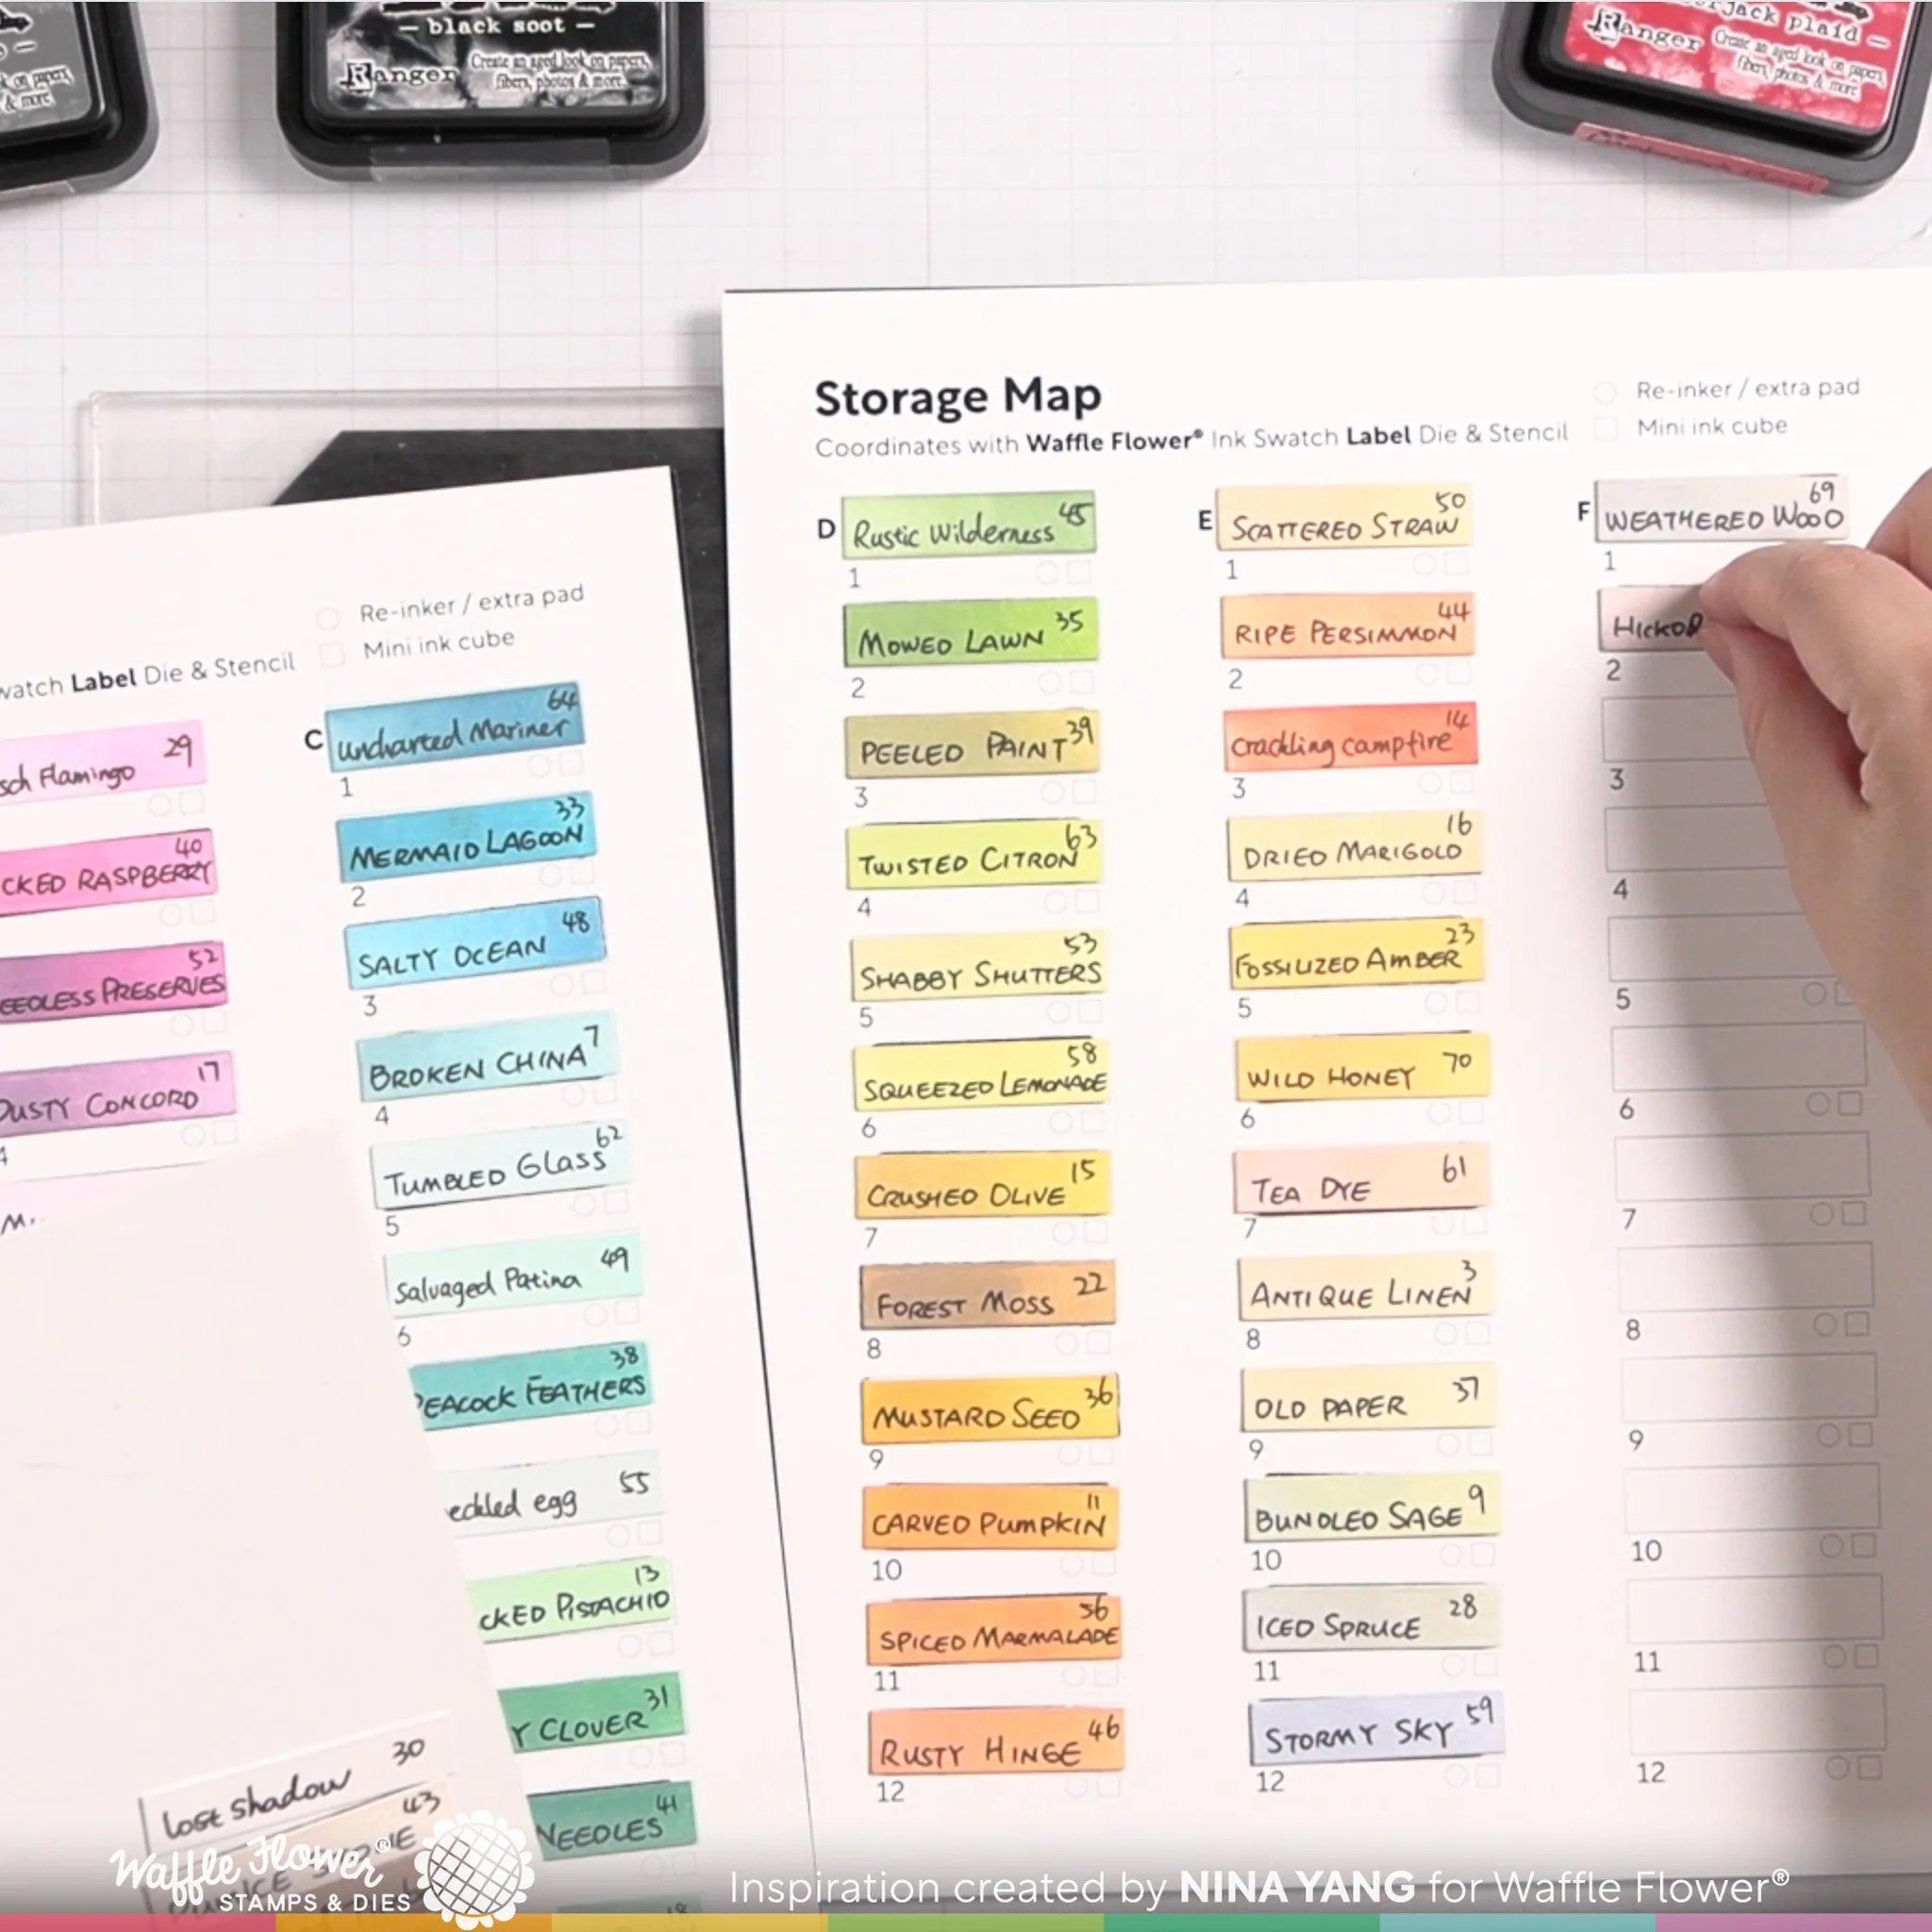 — black soot —
Ranger
Create an aged look on papers,
fibers, photos & more.
on papers,
& more
Jack plaid —
Ranger
Create an aged look on papers,
fibers, photos & more
Re-inker / extra pad
Mini ink cube
Label Die & Stencil
Flamingo 29
RASPBERRY 40
PRESERVES 52
DUSTY CONCORD 17
C
uncharted Mariner 64
1
MERMAID LAGOON 33
2
SALTY OCEAN 48
3
BROKEN CHINA 7
4
TUMBLED GLASS 62
5
Salvaged Patina 49
6
PEACOCK FEATHERS 38
egg 55
PISTACHIO 13
CLOVER 31
NEEDLES 41
18
lost shadow 30
43
Storage Map
Coordinates with Waffle Flower® Ink Swatch Label Die & Stencil
Re-inker / extra pad
Mini ink cube
D
Rustic Wilderness 45
1
MOWED LAWN 35
2
PEELED PAINT 39
3
TWISTED CITRON 63
4
SHABBY SHUTTERS 53
5
SQUEEZED LEMONADE 58
6
CRUSHED OLIVE 15
7
FOREST MOSS 22
8
MUSTARD SEED 36
9
CARVED PUMPKIN 11
10
SPICED MARMALADE 56
11
RUSTY HINGE 46
12
E
SCATTERED STRAW 50
1
RIPE PERSIMMON 44
2
crackling campfire 14
3
DRIED MARIGOLD 16
4
FOSSILIZED AMBER 23
5
WILD HONEY 70
6
TEA DYE 61
7
ANTIQUE LINEN 3
8
OLD PAPER 37
9
BUNDLED SAGE 9
10
ICED SPRUCE 28
11
STORMY SKY 59
12
F
WEATHERED WOOD 69
1
HICKO
2
3
4
5
6
7
8
9
10
11
12
Waffle Flower®
STAMPS & DIES
Inspiration created by NINA YANG for Waffle Flower®